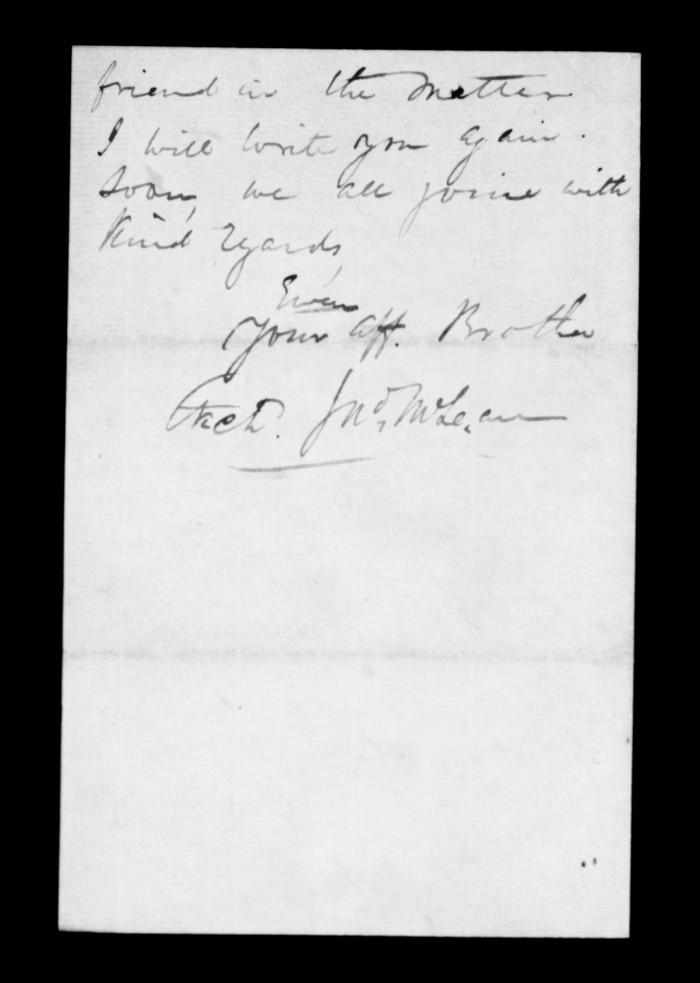 friend in the matter
I will write you again.
soon, we all joine with
Kind regards,
Ever
Your aff. Brother
Archd. Jno. McLean